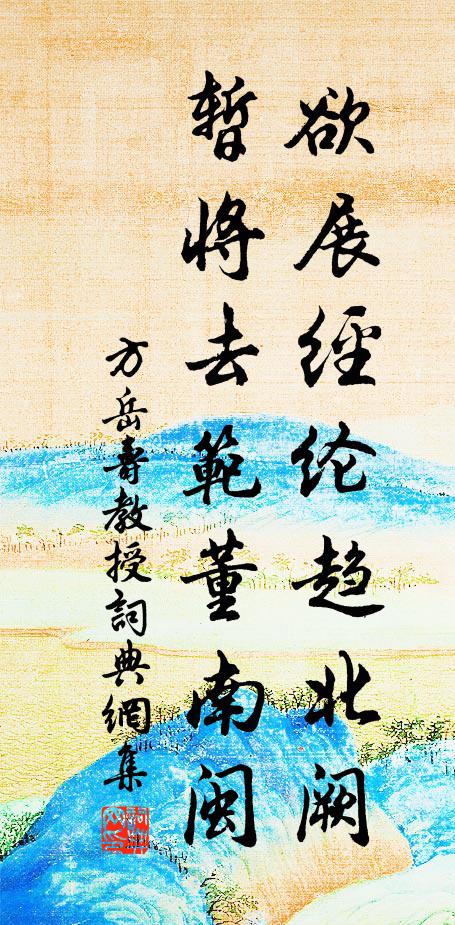 欲展經纶趋北阙
暂將去範董南闽
方岳壽教授詞典網集